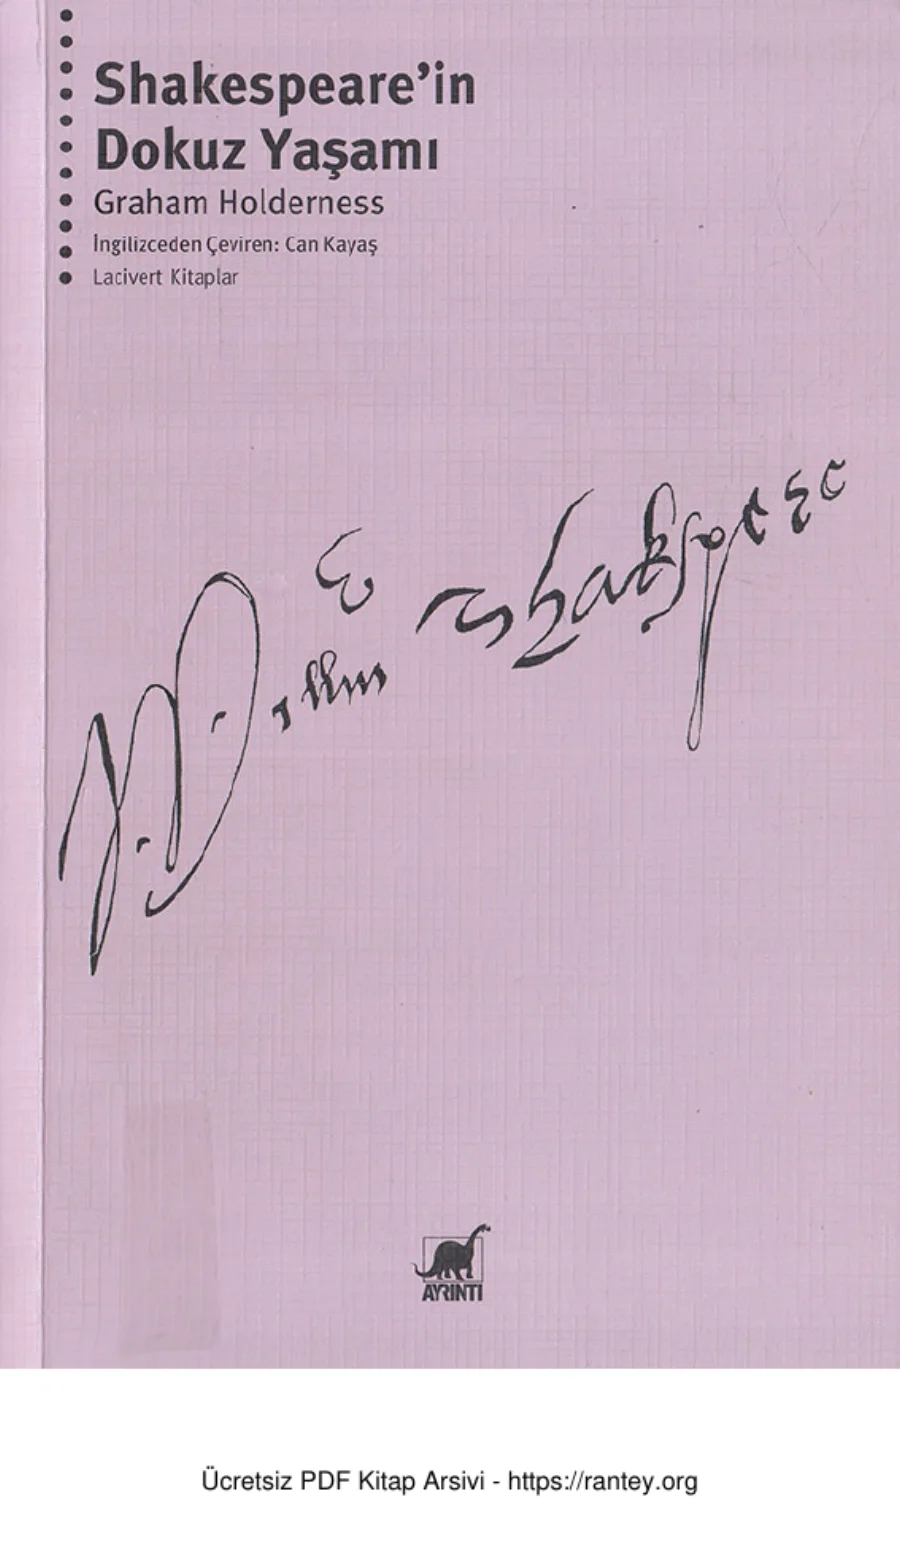 Shakespeare’in
Dokuz Yaşamı
Graham Holderness
İngilizceden Çeviren: Can Kayaş
Lacivert Kitaplar
AYRINTI
Ücretsiz PDF Kitap Arsivi - https://rantey.org